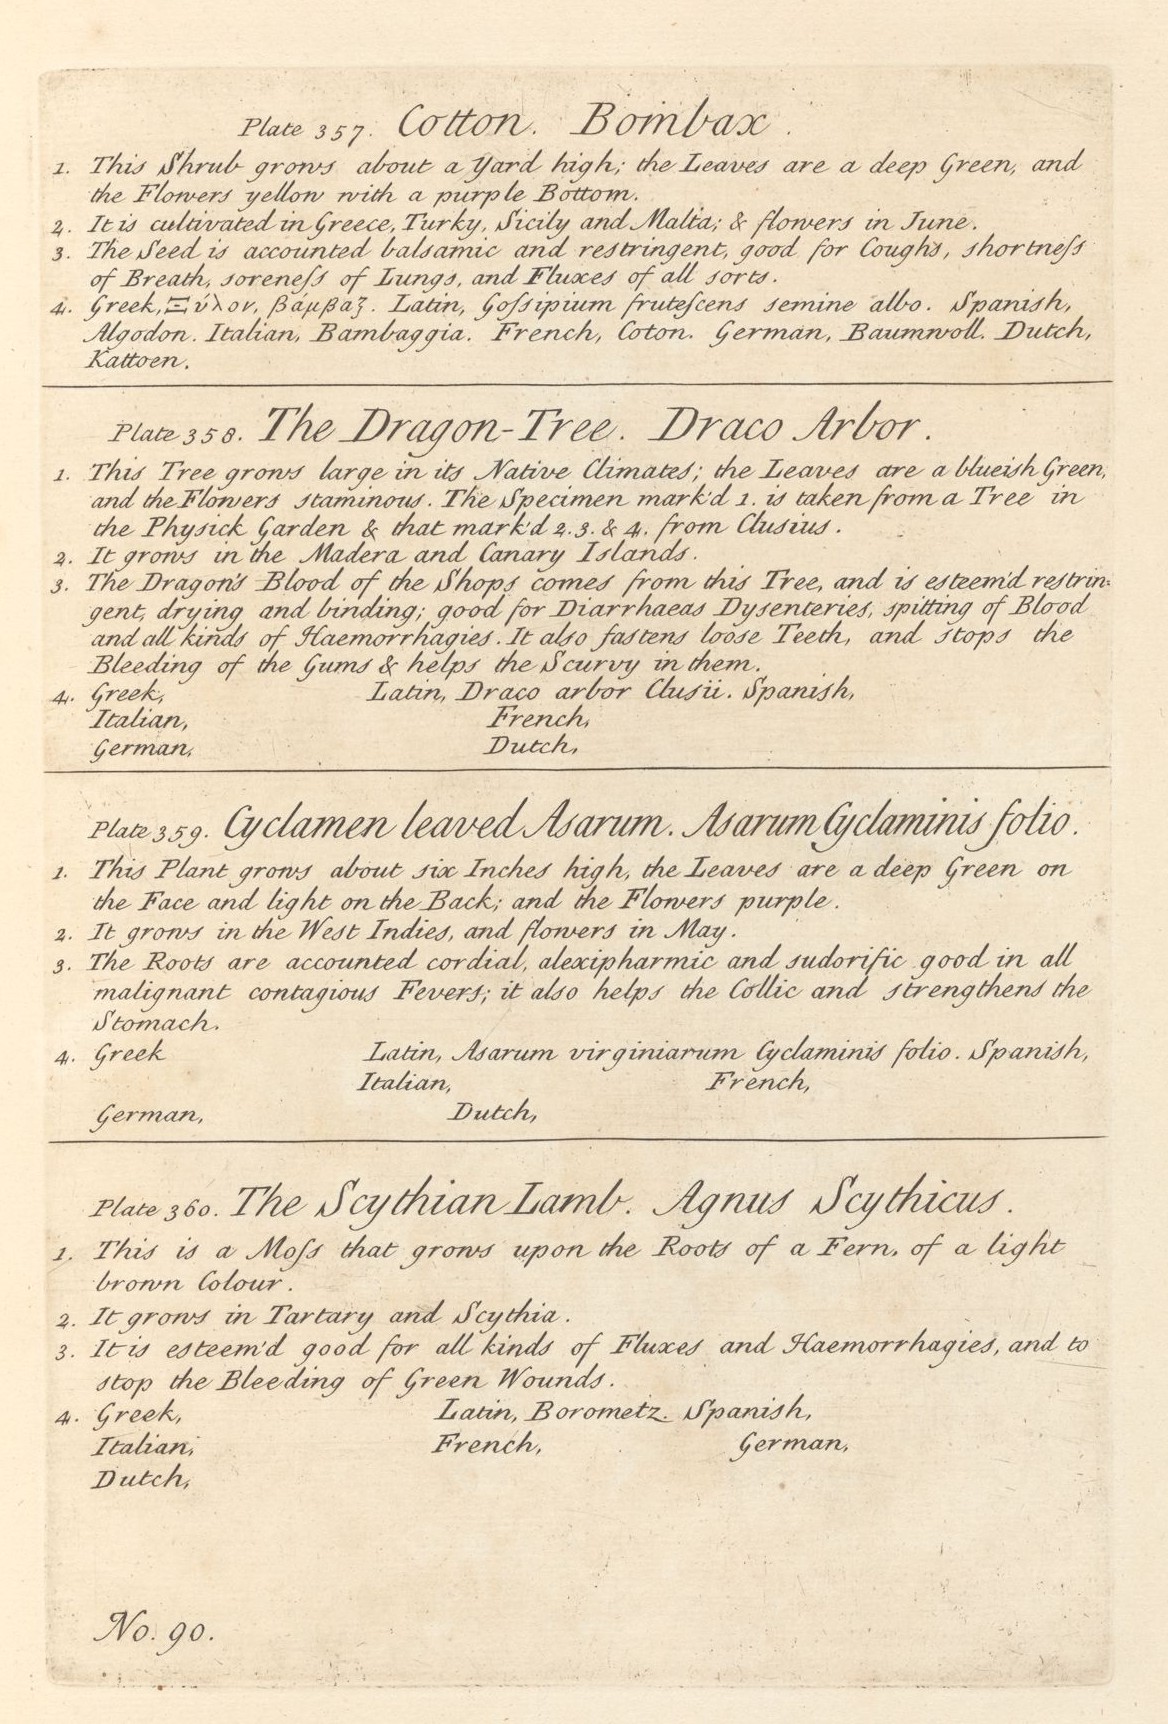 Plate 357. Cotton. Bombax.
1. This Shrub grows about a Yard high; the Leaves are a deep Green, and
the Flowers yellow with a purple Bottom.
2. It is cultivated in Greece, Turky, Sicily and Malta; & flowers in June.
3. The Seed is accounted balsamic and restringent, good for Coughs, shortneſs
of Breath, soreneſs of Lungs, and Fluxes of all sorts.
4. Greek, Ξύλον, βάμβαξ. Latin, Goſsipium fruteſcens semine albo. Spanish,
Algodon. Italian, Bambaggia. French, Coton. German, Baumwoll. Dutch,
Kattoen.
Plate 358. The Dragon-Tree. Draco Arbor.
1. This Tree grows large in its Native Climates; the Leaves are a blueish Green,
and the Flowers staminous. The Specimen mark'd 1. is taken from a Tree in
the Physick Garden & that mark'd 2. 3. & 4. from Clusius.
2. It grows in the Madera and Canary Islands.
3. The Dragon's Blood of the Shops comes from this Tree, and is esteem'd restrin-
gent, drying and binding; good for Diarrhaeas Dysenteries, spitting of Blood
and all kinds of Haemorrhagies. It also fastens loose Teeth, and stops the
Bleeding of the Gums & helps the Scurvy in them.
4. Greek, Latin, Draco arbor Clusii. Spanish,
Italian, French,
German, Dutch,
Plate 359. Cyclamen leaved Asarum. Asarum Cyclaminis folio.
1. This Plant grows about six Inches high, the Leaves are a deep Green on
the Face and light on the Back; and the Flowers purple.
2. It grows in the West Indies, and flowers in May.
3. The Roots are accounted cordial, alexipharmic and sudorific good in all
malignant contagious Fevers; it also helps the Collic and strengthens the
Stomach.
4. Greek Latin, Asarum virginiarum Cyclaminis folio. Spanish,
Italian, French,
German, Dutch,
Plate 360. The Scythian Lamb. Agnus Scythicus.
1. This is a Moſs that grows upon the Roots of a Fern, of a light
brown Colour.
2. It grows in Tartary and Scythia.
3. It is esteem'd good for all kinds of Fluxes and Haemorrhagies, and to
stop the Bleeding of Green Wounds.
4. Greek, Latin, Borometz. Spanish,
Italian, French, German,
Dutch,
No. 90.